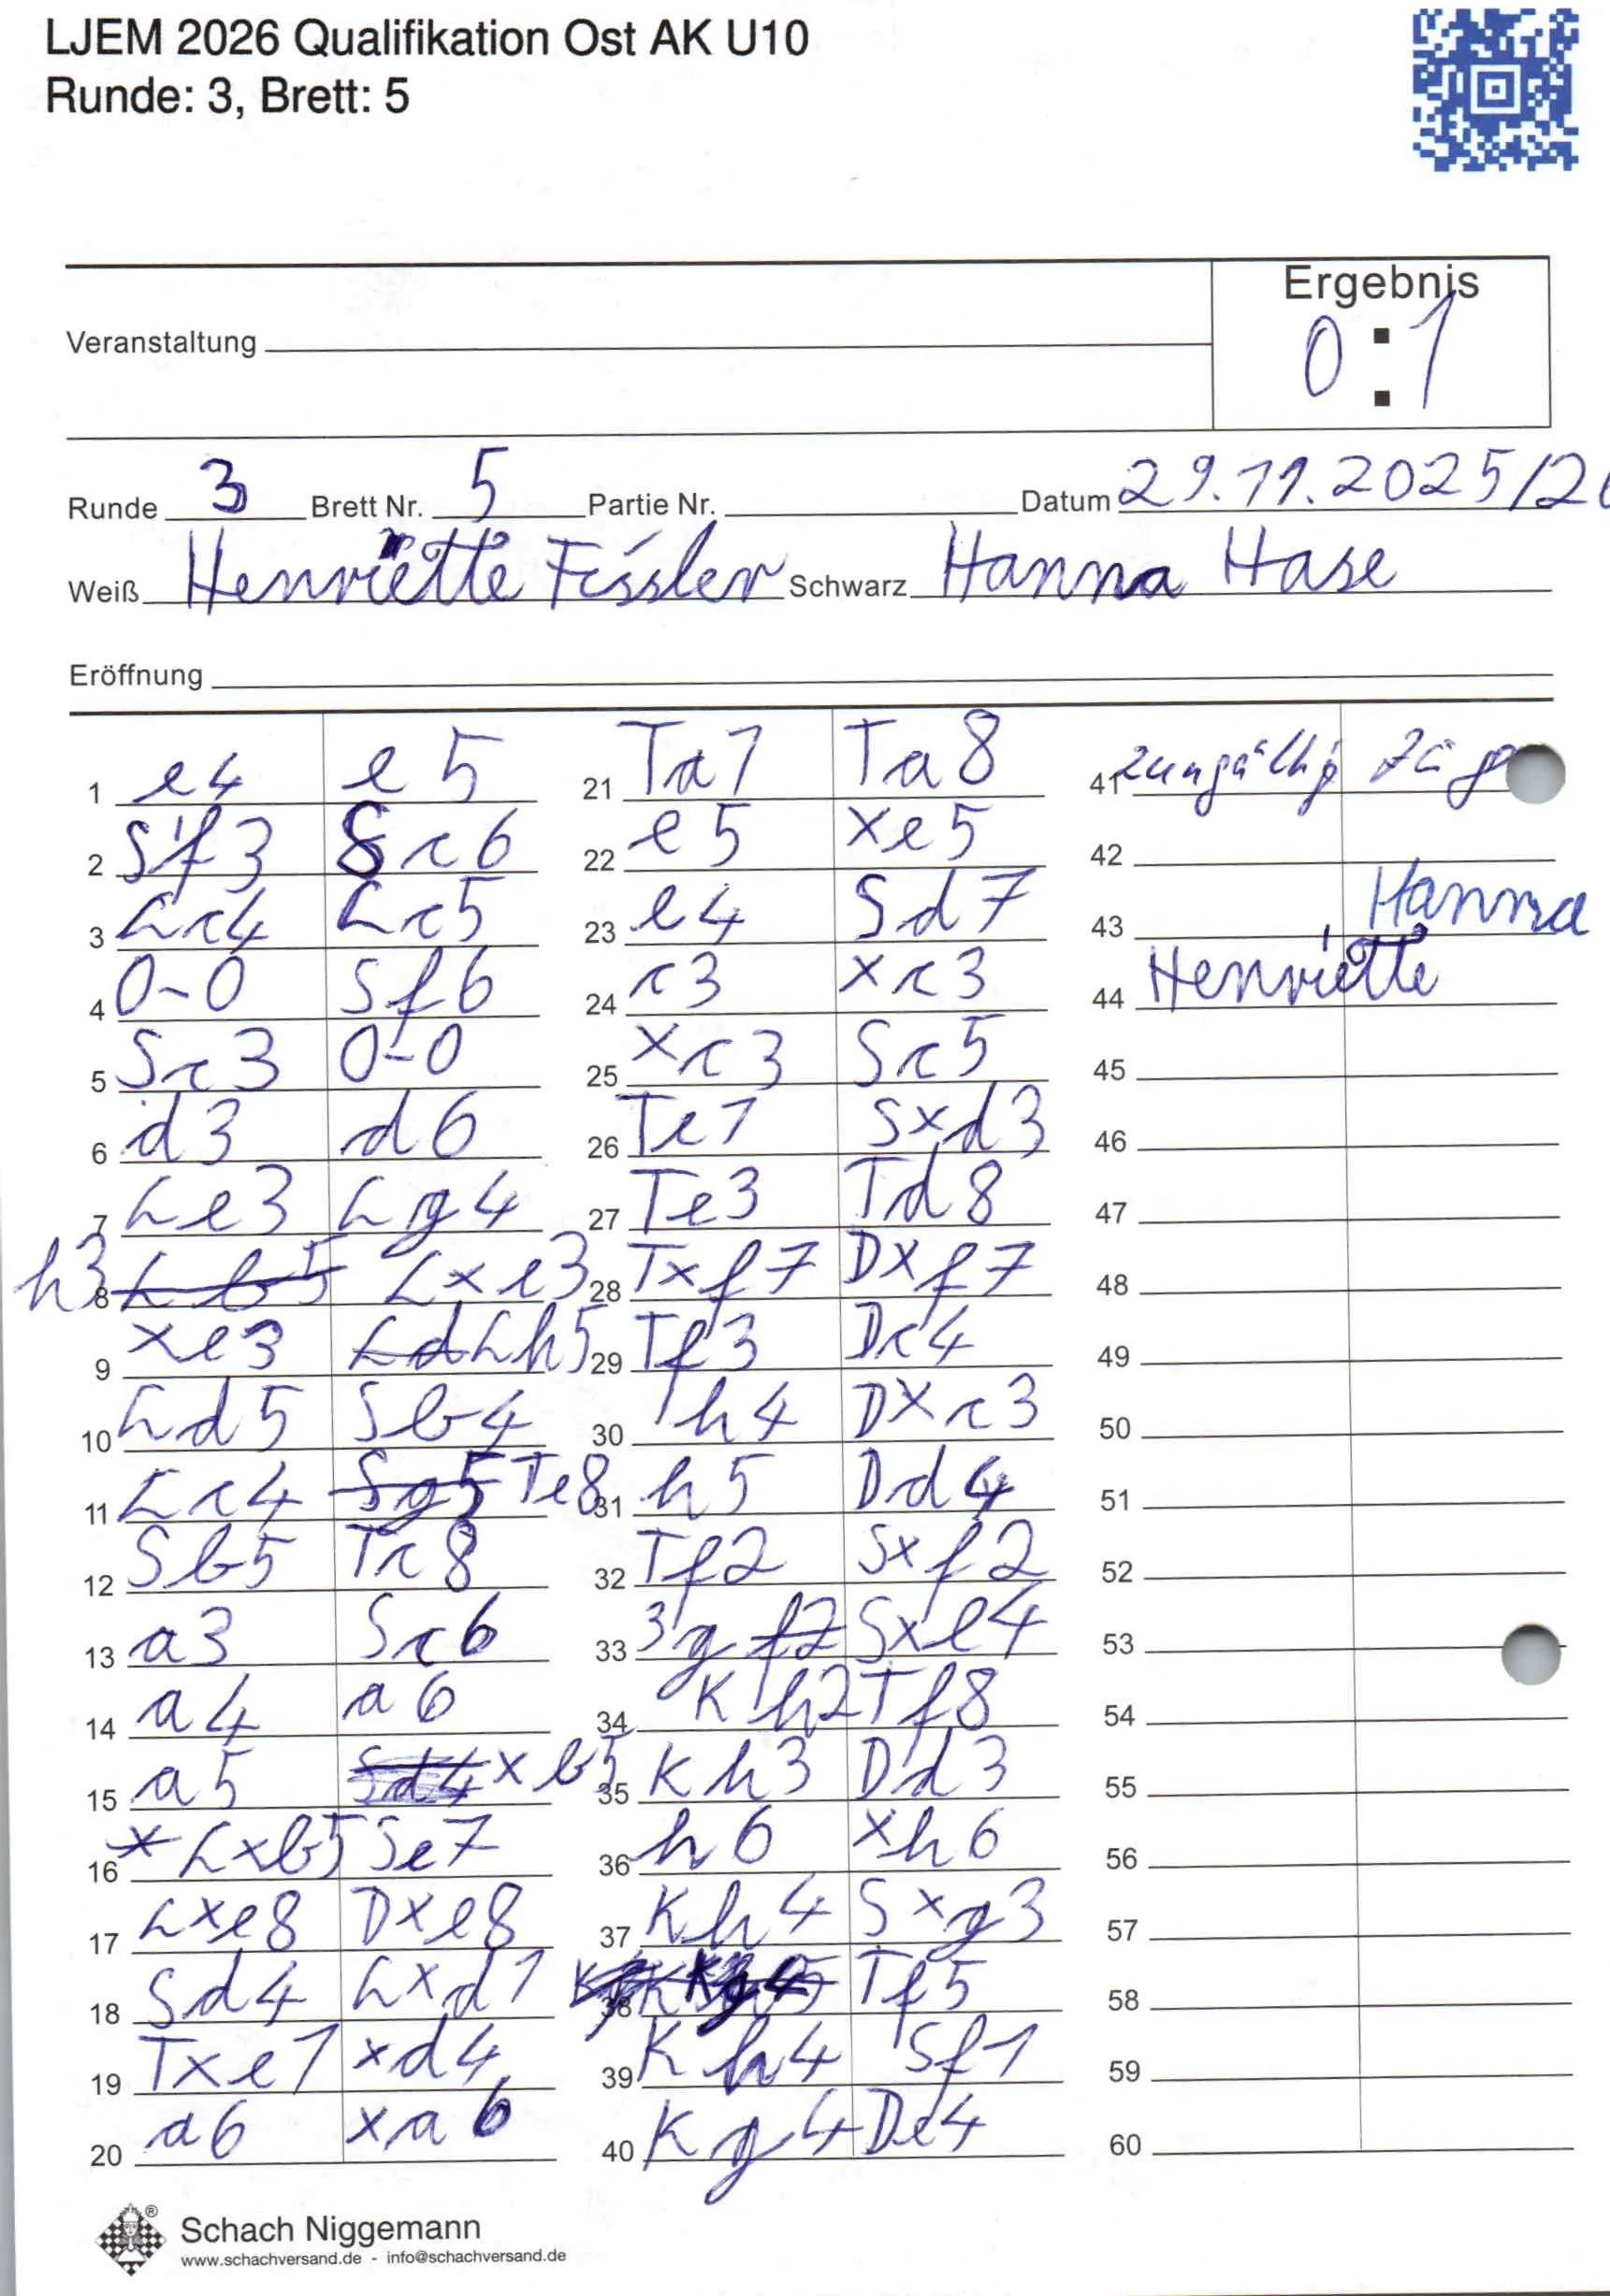 LJEM 2026 Qualifikation Ost AK U10
Runde: 3, Brett: 5
Ergebnis
Veranstaltung
0:1
Runde 3 Brett Nr. 5 Partie Nr. Datum 29.11.2025/2
Weiß Henriette Fissler Schwarz Hanna Hase
Eröffnung
1 e4 e5
2 Sf3 Sc6
3 Lc4 Lc5
4 0-0 Sf6
5 Sc3 0-0
6 d3 d6
7 Le3 Lg4
8 h3 Lb5 Lxe3
9 xe3 Ld Lh5
10 Ld5 Sb4
11 Lc4 Sg5 Te8
12 Sb5 Tc8
13 a3 Sc6
14 a4 a6
15 a5 Sd4 xb5
16 x Lxb5 Se7
17 Lxe8 Dxe8
18 Sd4 Lxd1
19 Txe1 xd4
20 a6 xa6
21 Ta1 Ta8
22 e5 xe5
23 e4 Sd7
24 c3 xc3
25 xc3 Sc5
26 Te1 Sxd3
27 Te3 Td8
28 Txf7 Dxf7
29 Tf3 Dc4
30 h4 Dxc3
31 h5 Dd4
32 Tf2 Sxf2
33 3g f2 Sxe4
34 Kh2 Tf8
35 Kh3 Dd3
36 h6 xh6
37 Kh4 Sxg3
38 Tf5
39 Kh4 Sf1
40 Kg4 De4
41 2 ungültig Züg
42
43 Hanna
44 Henriette
45
46
47
48
49
50
51
52
53
54
55
56
57
58
59
60
Schach Niggemann
www.schachversand.de - info@schachversand.de